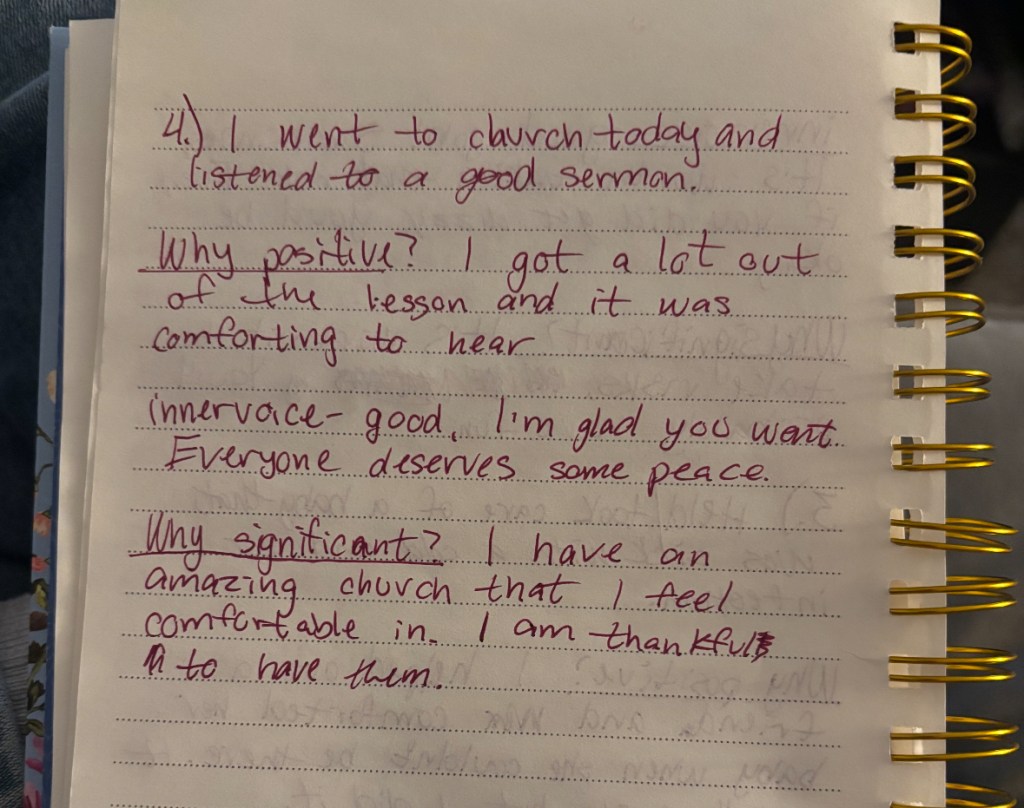 4.) I went to church today and
listened to a good sermon.
Why positive? I got a lot out
of the lesson and it was
comforting to hear
innervoice- good, I'm glad you went.
Everyone deserves some peace.
Why significant? I have an
amazing church that I feel
comfortable in. I am thankful
to have them.